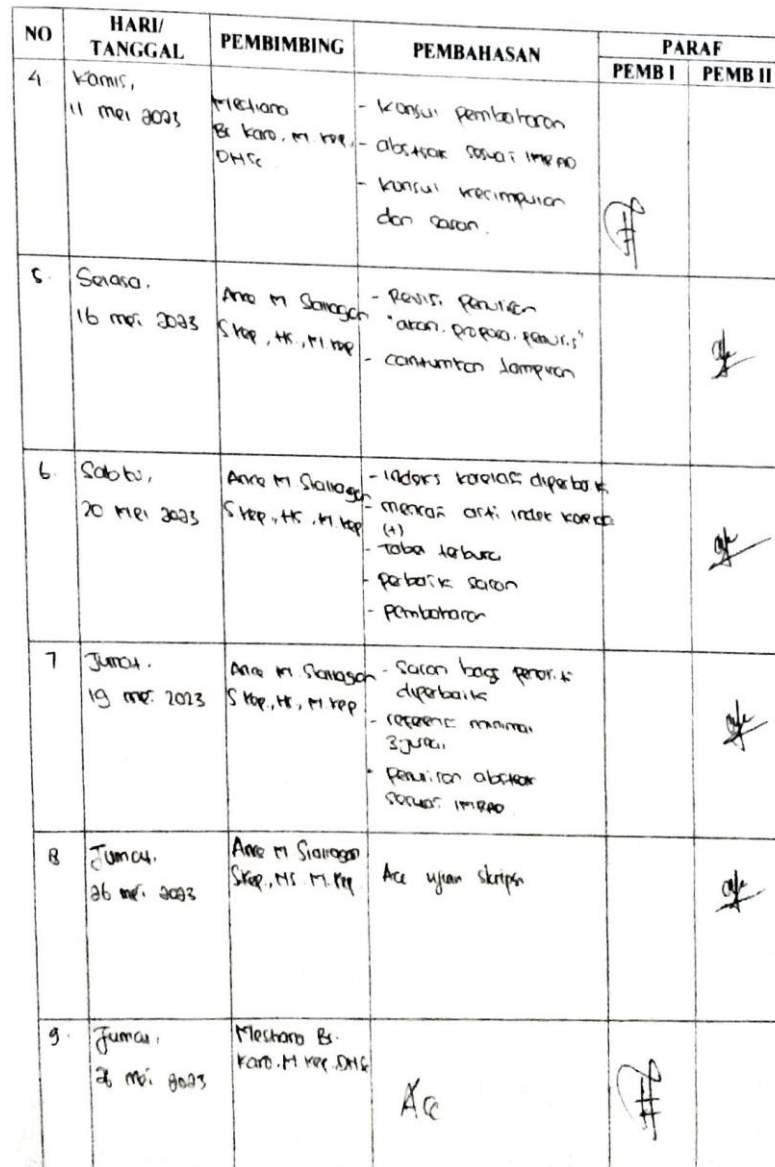 NO HARI/ TANGGAL PEMBIMBING PEMBAHASAN PARAF
PEMB I PEMB II
4. Kamis,
11 mei 2023
Mestiana
Br Karo, M. Kep,
DHSc
- Konsul pembahasan
- abstrak sesuai IMRAD
- Konsul kesimpulan
dan saran.
5. Selasa,
16 mei 2023
Anna M Siallagan
S Kep, NS, M Kep
- Revisi penulisan
"akan, proposal, penulis"
- cantumkan lampiran
6. Sabtu,
20 Mei 2023
Anna M. Siallagan
S Kep, NS, M. Kep
- indeks korelasi diperbaik
- mencari arti index korelasi
(+)
- Tabel terbuka
- perbaik saran
- pembahasan
7 Jumat.
19 mei 2023
Anna M. Siallagan
S Kep, NS, M Kep
- Saran bagi peneliti
diperbaik
- referensi minimal
3 jurnal
- Penulisan abstrak
sesuai IMRAD
8 Jumat.
26 mei 2023
Anna M Siallagan
SKep, NS. M. Kep
Acc ujian skripsi
9. Jumat,
26 mei 2023
Mestiana Br.
Karo. M Kep. DHSc
Acc